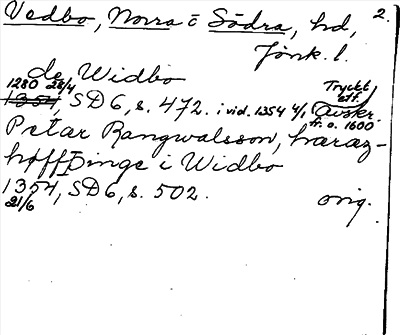 Vedbo, Norra o Södra, hd, 2.
Jönk. l.
de Widbo
1280 28/4 Tryckt eft.
1354, SD 6, s. 472. i vid. 1354 4/1 (avskr. fr. o. 1600
Petar Rangwalsson, hæraz-
høffþinge i Widbo
1354, SD 6, s. 502. orig.
21/6